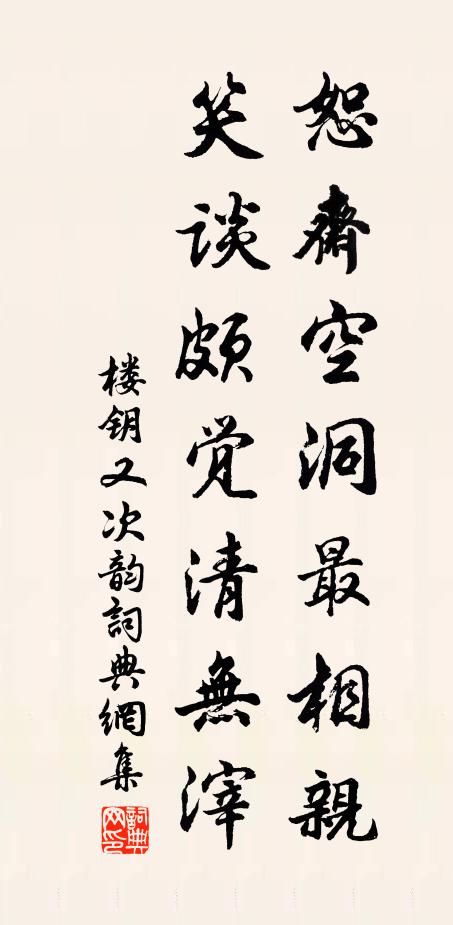 恕齋空洞最相親
笑談頗覺清無滓
楼钥又次韵詞典網集
詞典网印